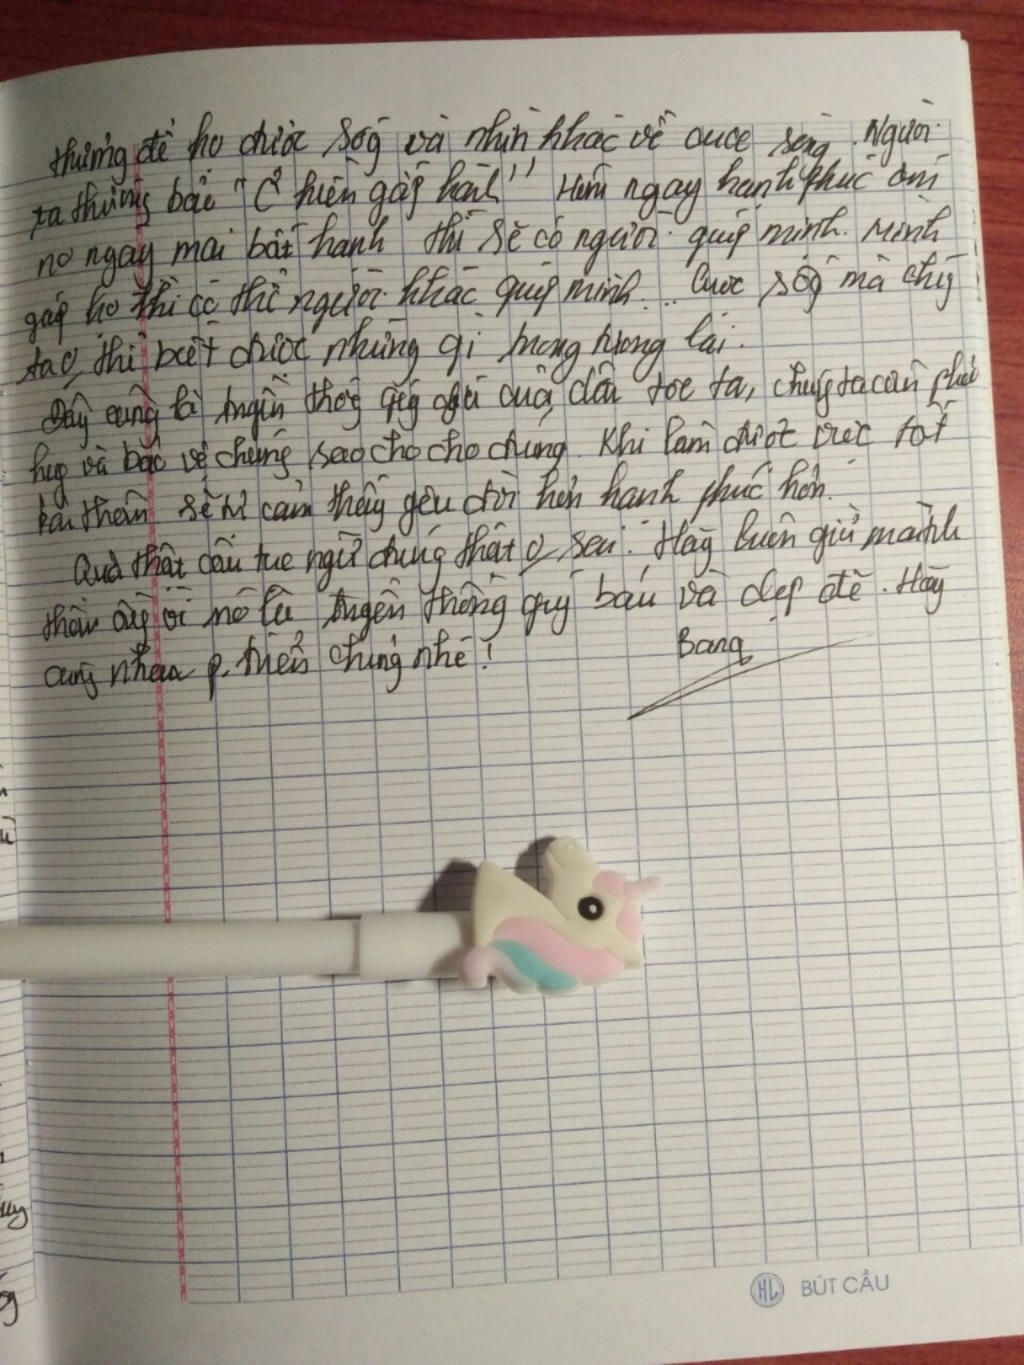 thương để họ được sốg và nhìn khác về cuộc sống. Người
ta thường bảo "Ở hiền gặp lành" Hôm ngay hạnh phúc ấm
no ngay mai bất hạnh thì sẽ có người giúp mình. Mình
giúp họ thì có thể người khác giúp mình... Cuộc sốg mà chúg
ta o thể biết được những gì trong tương lai.
Đây cũng là truyền thốg quý giá của dân tộc ta, chúg ta cần phát
huy và bảo vệ chúng sao cho cho chúng. Khi làm được việc tốt
bản thân sẽ cảm thấy yêu đời hơn hạnh phúc hơn.
Quả thật câu tục ngữ chúng thật o sai. Hãy luôn giữ mãi tinh
thần ấy vì nó là truyền thống quý báu và đẹp đẽ. Hãy
cùng nhau p. triển chúng nhé!
Bang
HL BÚT CẦU